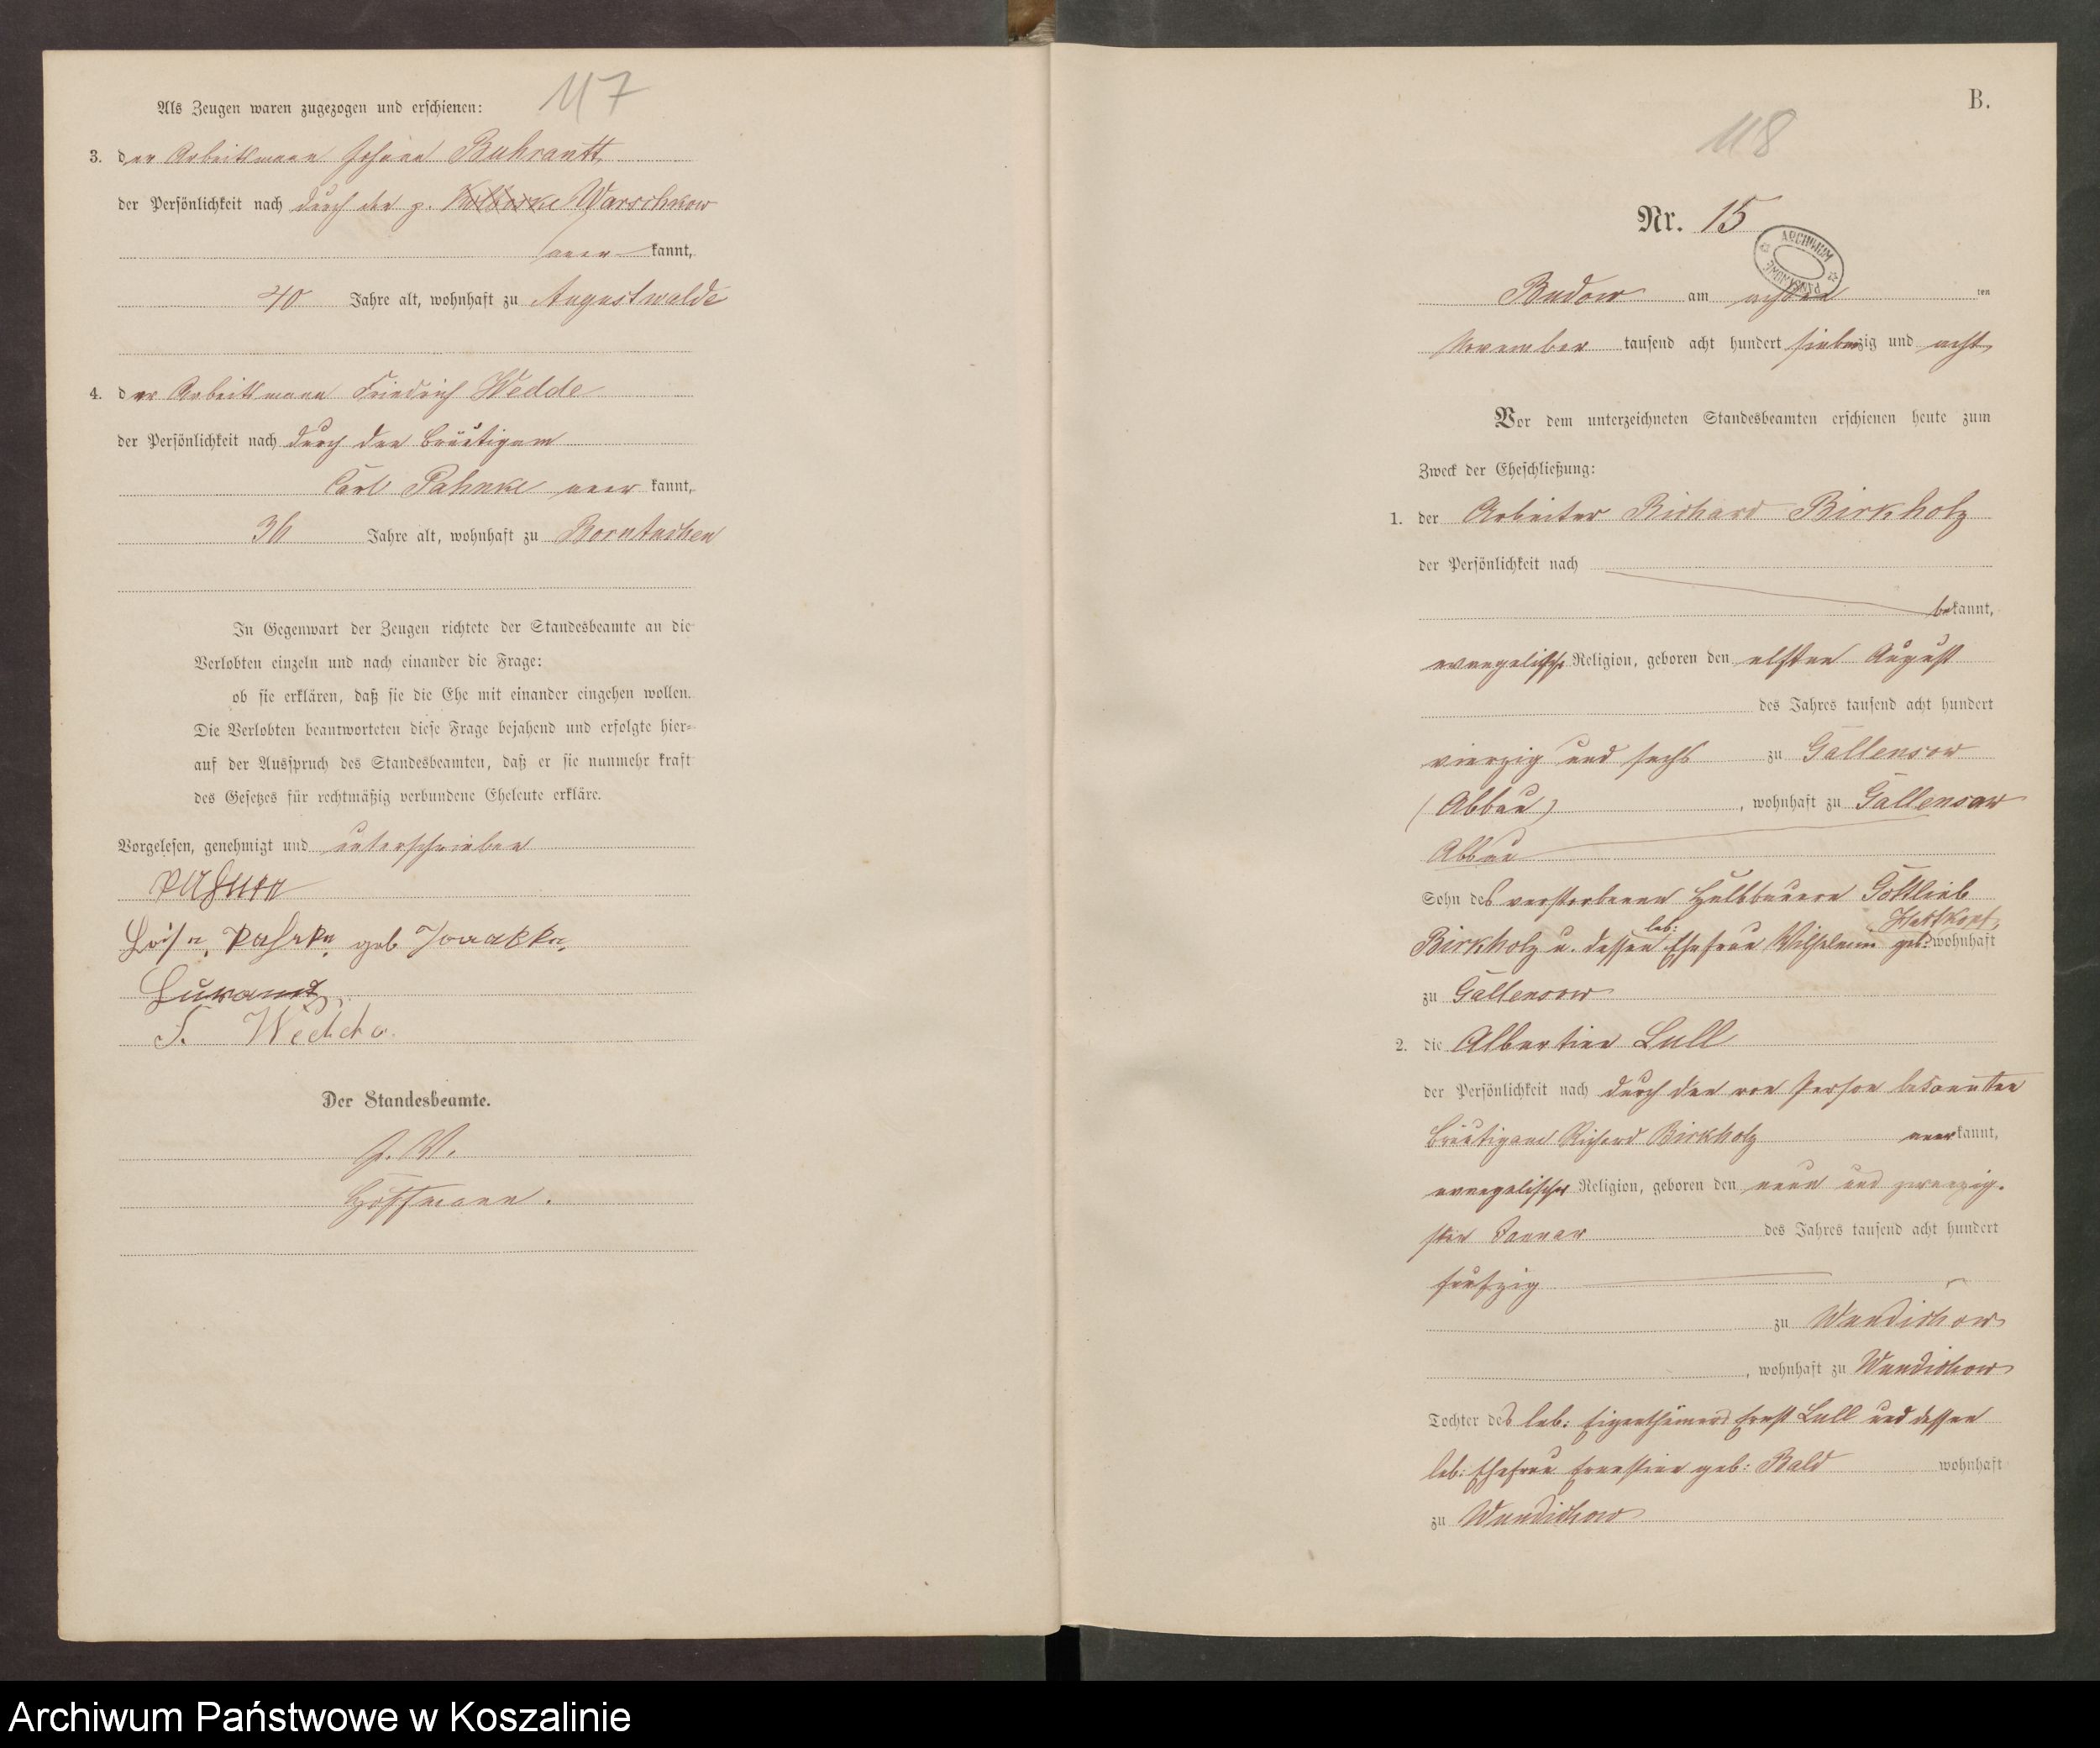 117
Als Zeugen waren zugezogen und erschienen:
3. der Arbeitsmann Johann Buhrantt
der Persönlichkeit nach durch den p. Warschkow
aner kannt,
40 Jahre alt, wohnhaft zu Augustwalde
4. der Arbeitsmann Friedrich Wedde
der Persönlichkeit nach durch den Bräutigam
Carl Pahnke aner kannt,
36 Jahre alt, wohnhaft zu Borntuchen
In Gegenwart der Zeugen richtete der Standesbeamte an die
Verlobten einzeln und nach einander die Frage:
ob sie erklären, daß sie die Ehe mit einander eingehen wollen.
Die Verlobten beantworteten diese Frage bejahend und erfolgte hier-
auf der Ausspruch des Standesbeamten, daß er sie nunmehr kraft
des Gesetzes für rechtmäßig verbundene Eheleute erkläre.
Vorgelesen, genehmigt und unterschrieben
geb
Der Standesbeamte.
J. V.
Hoffmann.
B.
118
Nr. 15
ARCHIWUM PAŃSTWOWE
Budow am achten ten
November tausend acht hundert siebenzig und acht
Vor dem unterzeichneten Standesbeamten erschienen heute zum
Zweck der Eheschließung:
1. der Arbeiter Richard Birkholz
der Persönlichkeit nach
bekannt,
evangelischer Religion, geboren den elften August
des Jahres tausend acht hundert
vierzig und sechs zu Gallensow
(Abbau), wohnhaft zu Gallensow
Abbau
Sohn des verstorbenen Halbbauern Gottlieb
Birkholz u. dessen leb: Ehefrau Wilhelmine geb: wohnhaft
zu Gallensow
2. die Albertine Lull
der Persönlichkeit nach durch den von Person bekannten
Bräutigam Richard Birkholz anerkannt,
evangelischer Religion, geboren den neun und zwanzig-
sten Januar des Jahres tausend acht hundert
fünfzig
zu Wundichow
, wohnhaft zu Wundichow
Tochter des leb: Eigenthümers Ernst Lull und dessen
leb: Ehefrau Ernestine geb: Bald wohnhaft
zu Wundichow
Archiwum Państwowe w Koszalinie